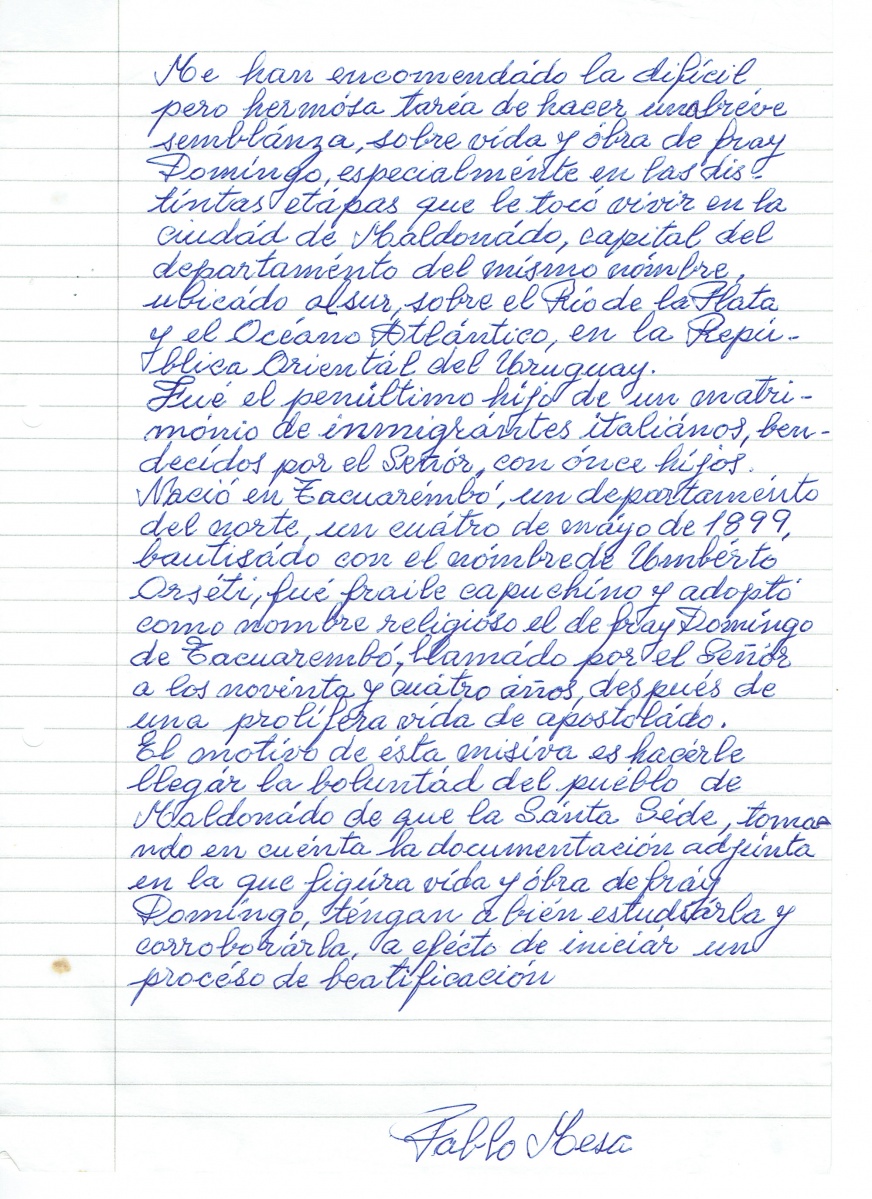 Me han encomendádo la difícil
pero hermósa taréa de hacer una bréve
semblánza, sobre vída y óbra de fray
Domíngo, especialménte en las dis-
tíntas etápas que le tocó vivir en la
ciudád de Maldonádo, capital del
departaménto del mísmo nómbre,
ubicádo al sur, sobre el Río de la Plata
y el Océano Atlántico, en la Repú-
blica Orientál del Uruguay.
Fué el penúltimo híjo de un matri-
mónio de inmigrántes italiános, ben-
decídos por el Señór, con ónce híjos.
Nació en Tacuarémbó, un departaménto
del norte, un cuátro de máyo de 1899,
bautisádo con el nómbre de Umbérto
Orséti, fué fraile capuchíno y adoptó
como nombre religioso el de fray Domíngo
de Tacuarembó, llamádo por el Señór
a los novénta y cuátro áños, después de
una prolífera vída de apostoládo.
El motívo de ésta misíva es hacérle
llegár la boluntád del puéblo de
Maldonádo de que la Sánta Séde, toma-
ndo en cuénta la documentación adjúnta
en la que figúra vída y óbra de fráy
Domíngo, téngan a bién estudiárla y
corroborárla, a efécto de iniciár un
procéso de beatificación
Pablo Mesa